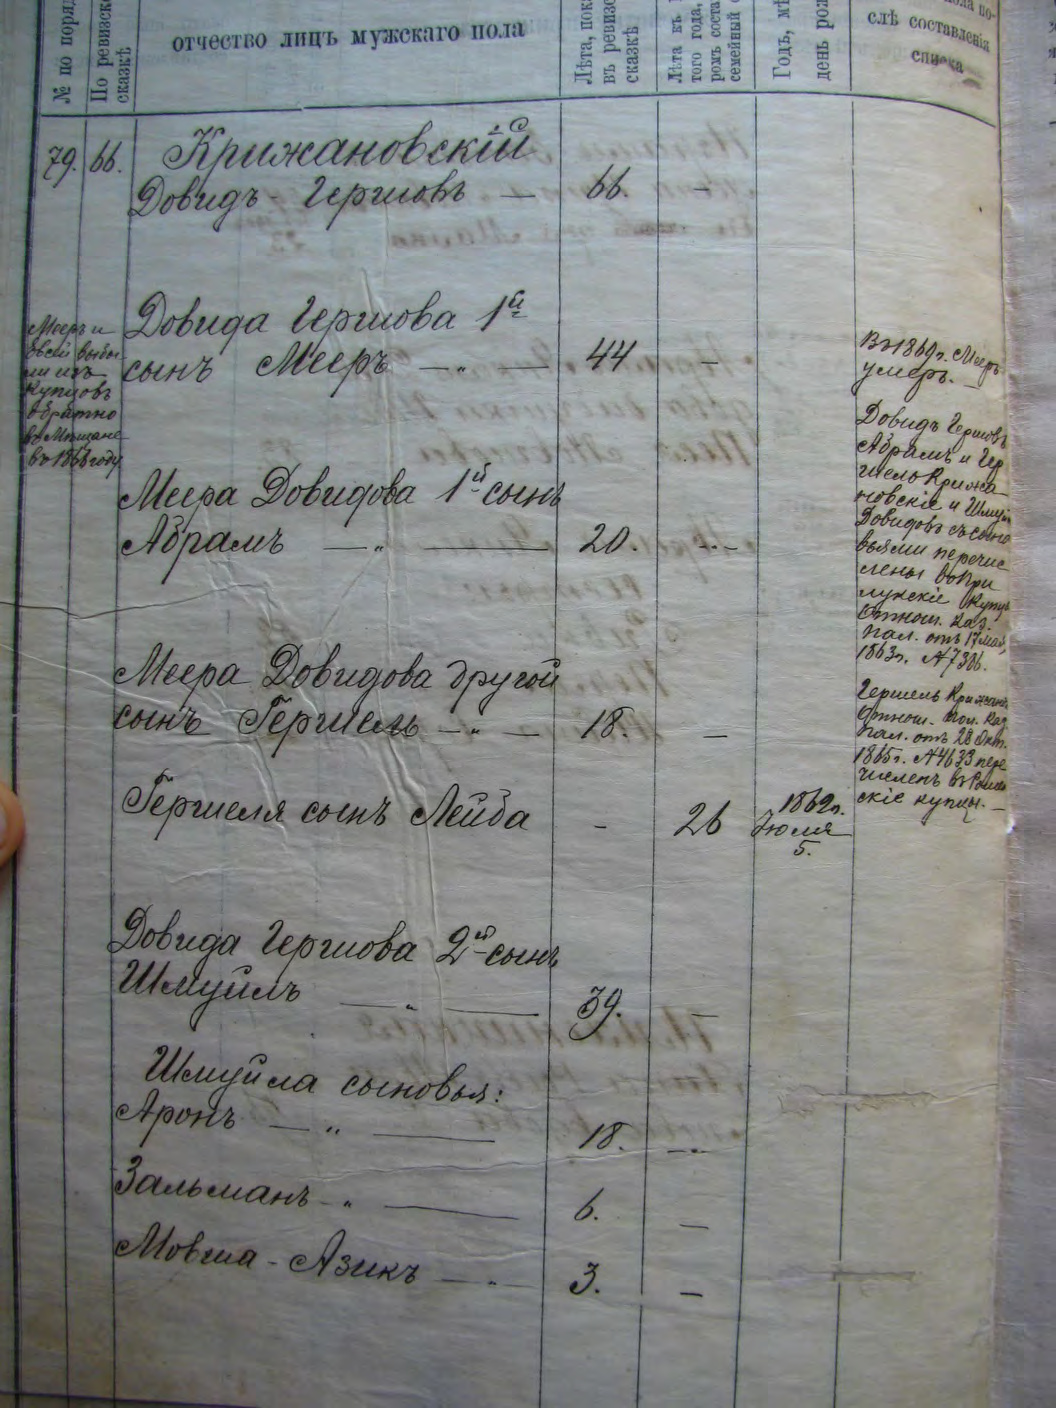 № по поряд
По ревизско
сказкѣ
отчество лицъ мужскаго пола
Лѣта, пока
въ ревизс
сказкѣ
Лѣта къ
того года,
ромъ соста
семейный с
Годъ, мѣ
день рож
пола по-
слѣ составленія
списка
79. 66. Крижановскій
Довидъ Гершовъ — 66. —
Довида Гершова 1й
сынъ Мееръ — „ — 44 —
Мееръ и
Евсей выбы
ли изъ
Купцовъ
обратно
въ Мѣщане
въ 1866 году
Въ 1869 г. Мееръ
умеръ. —
Меера Довидова 1й сынъ
Абрамъ — „ — 20. —
Довидъ Гершовъ
Абрамъ и Гер
шель Крижа
новскіе и Шмуй
Довидовъ съ сыно
вьями перечис
лены въ При
лукскіе Купц
Отнош. Каз.
Пал. отъ 17 мая
1863 г. №7386.
Меера Довидова другой
сынъ Гершель — „ — 18. —
Гершель Крижанов
Отнош. Пол. Каз
Пал. отъ 28 Окт.
1865 г. №4633 пере
численъ въ
скіе купцы. —
Гершеля сынъ Лейба — 26 1862 г.
Іюля
5.
Довида Гершова 2й сынъ
Шмуйлъ — „ — 39. —
Шмуйла сыновья:
Аронъ — „ — 18. —
Зальманъ — „ — 6. —
Мовша - Азикъ — „ — 3. —